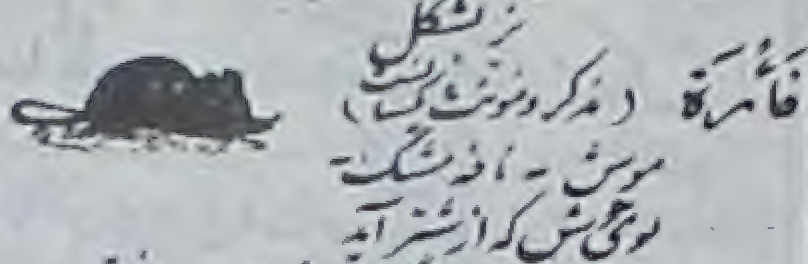 بشکل
فَأْرَة (مذکر ومونث یکسانست)
موش - نافه مشک -
بوی خوش که از شتر آید